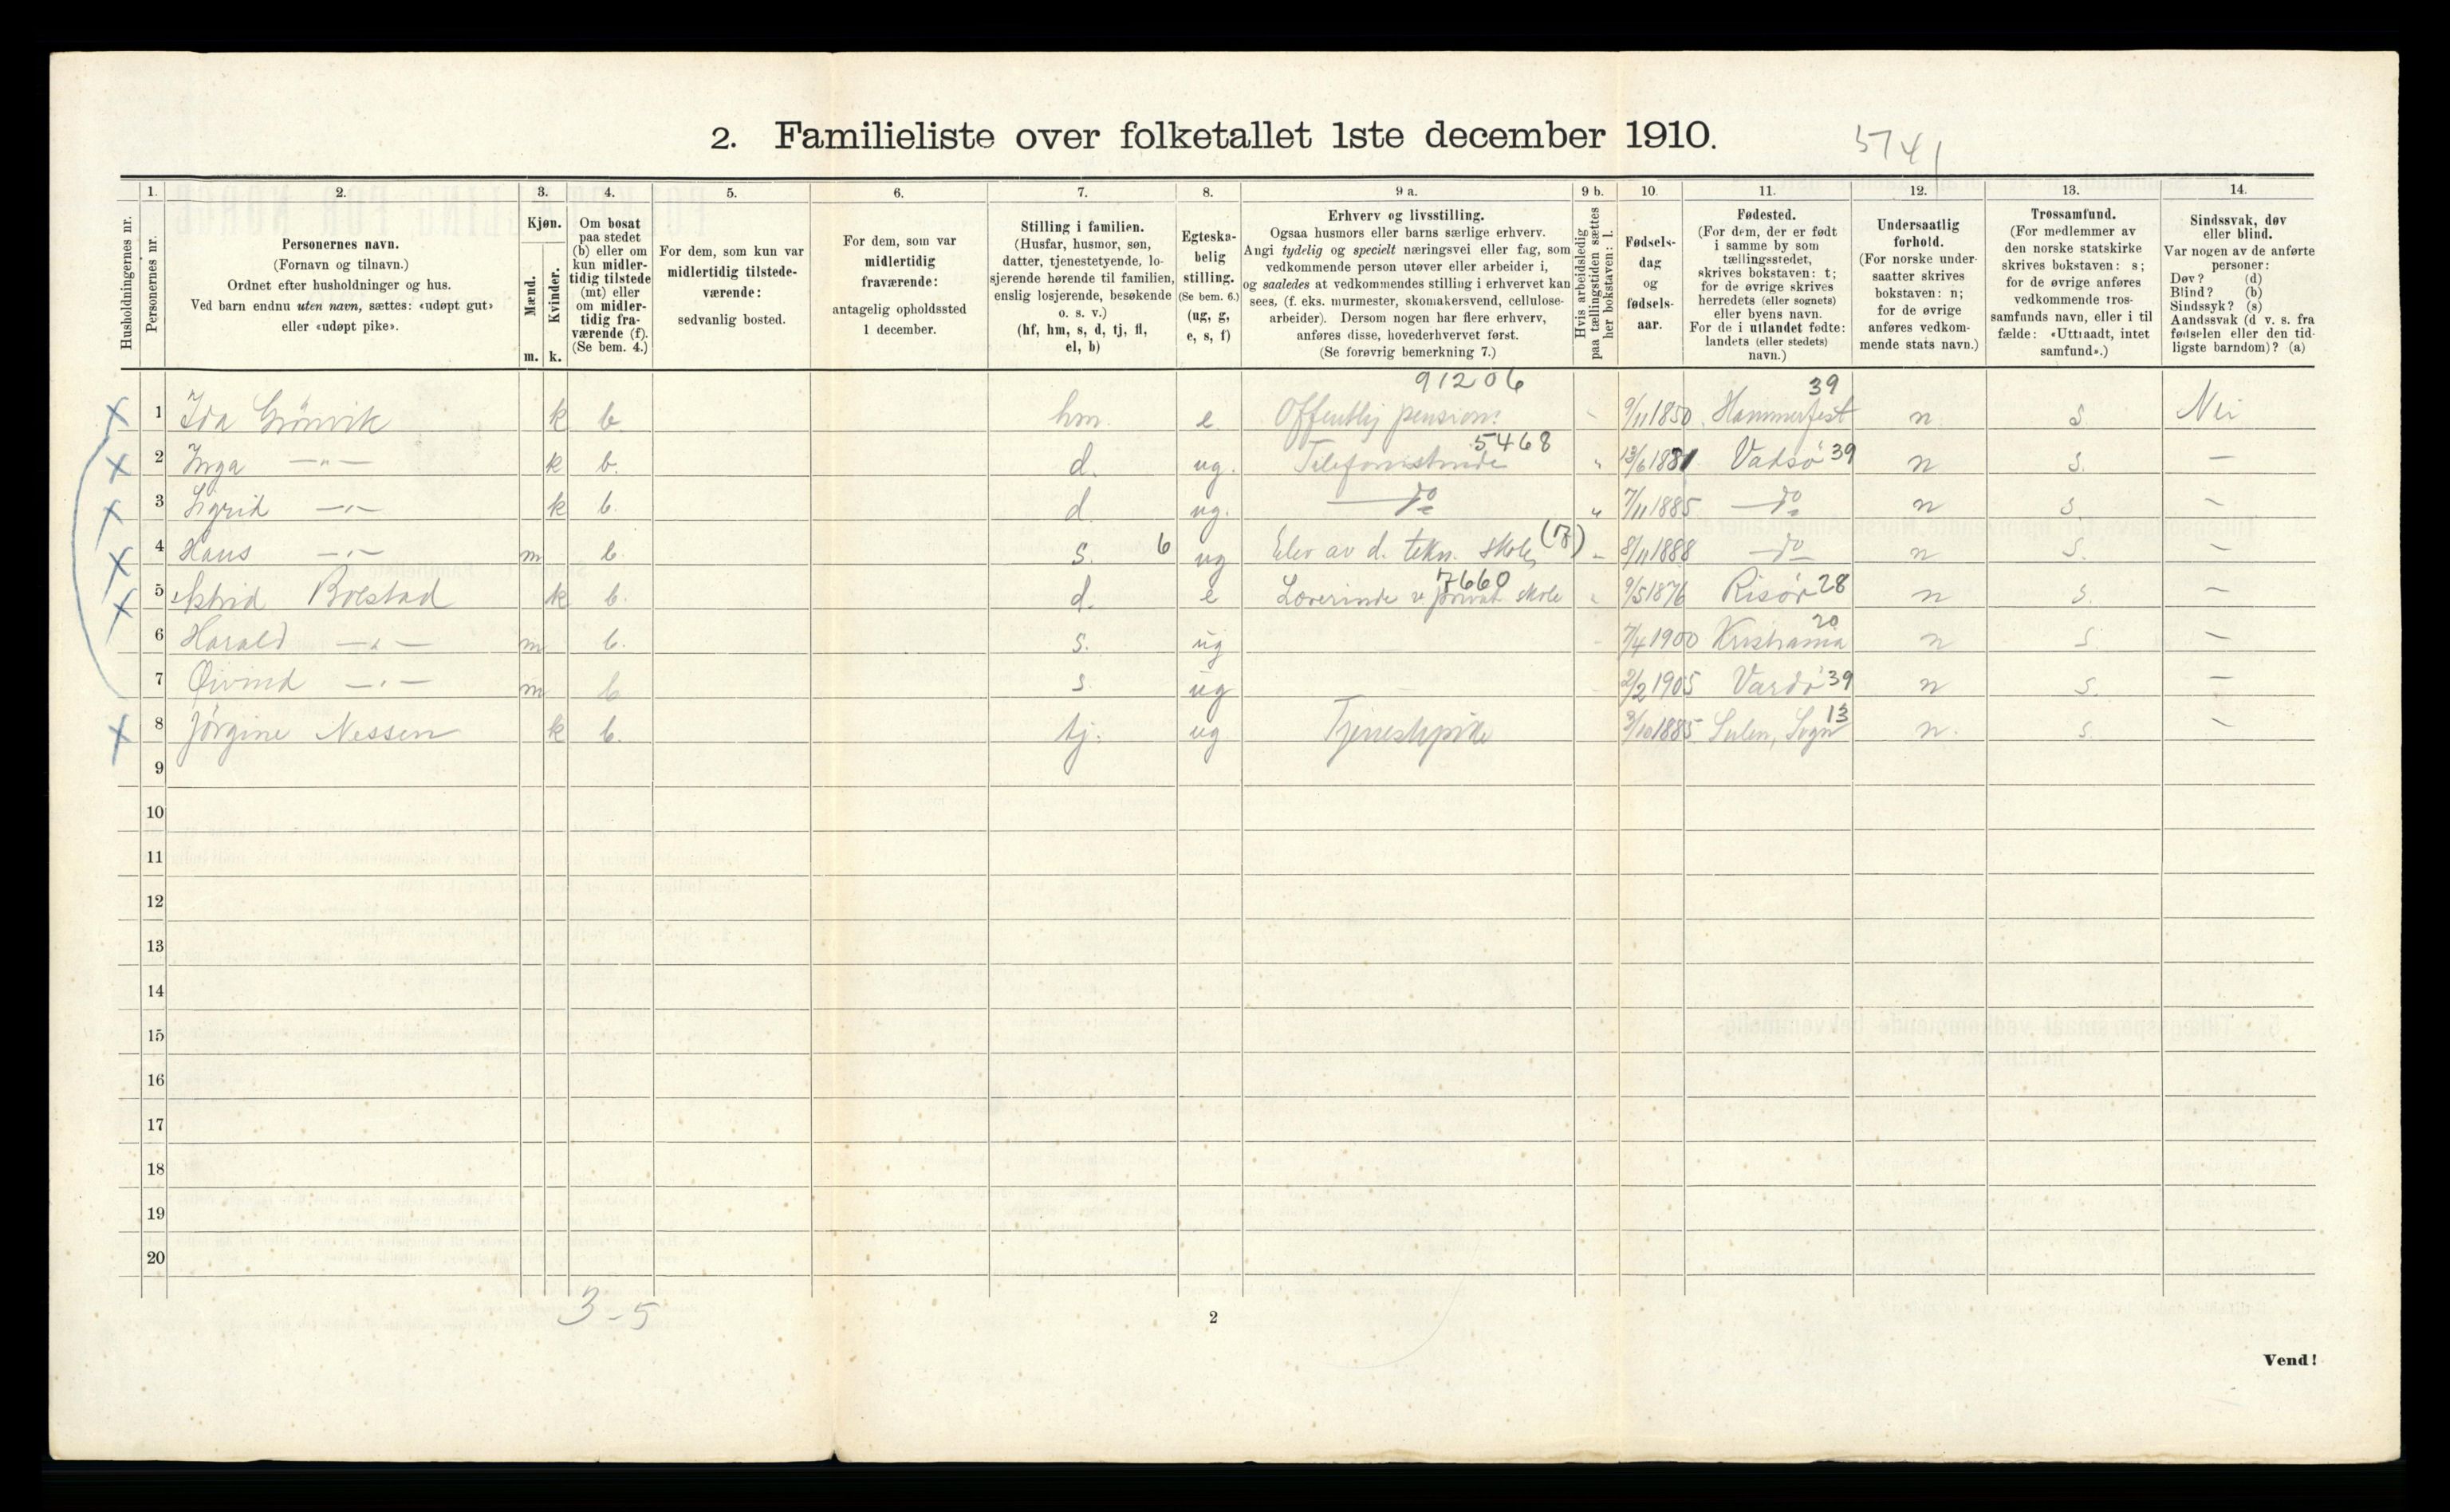 2. Familieliste over folketallet 1ste december 1910.
5741
Husholdningernes nr.
1. Personernes nr.
2. Personernes navn. (Fornavn og tilnavn.) Ordnet efter husholdninger og hus. Ved barn endnu uten navn, sættes: «udøpt gut» eller «udøpt pike».
3. Kjøn. Mænd. m. Kvinder. k.
4. Om bosat paa stedet (b) eller om kun midlertidig tilstede (mt) eller om midlertidig fraværende (f). (Se bem. 4.)
5. For dem, som kun var midlertidig tilstedeværende: sedvanlig bosted.
6. For dem, som var midlertidig fraværende: antagelig opholdssted 1 december.
7. Stilling i familien. (Husfar, husmor, søn, datter, tjenestetyende, losjerende hørende til familien, enslig losjerende, besøkende o. s. v.) (hf, hm, s, d, tj, fl, el, b)
8. Egteskabelig stilling. (Se bem. 6.) (ug, g, e, s, f)
9 a. Erhverv og livsstilling. Ogsaa husmors eller barns særlige erhverv. Angi tydelig og specielt næringsvei eller fag, som vedkommende person utøver eller arbeider i, og saaledes at vedkommendes stilling i erhvervet kan sees, (f. eks. murmester, skomakersvend, cellulosearbeider). Dersom nogen har flere erhverv, anføres disse, hovederhvervet først. (Se forøvrig bemerkning 7.)
9 b. Hvis arbeidsledig paa tællingstiden sættes her bokstaven: l.
10. Fødselsdag og fødselsaar.
11. Fødested. (For dem, der er født i samme by som tællingsstedet, skrives bokstaven: t; for de øvrige skrives herredets (eller sognets) eller byens navn. For de i utlandet fødte: landets (eller stedets) navn.)
12. Undersaatlig forhold. (For norske undersaatter skrives bokstaven: n; for de øvrige anføres vedkommende stats navn.)
13. Trossamfund. (For medlemmer av den norske statskirke skrives bokstaven: s; for de øvrige anføres vedkommende trossamfunds navn, eller i tilfælde: «Uttraadt, intet samfund».)
14. Sindssvak, døv eller blind. Var nogen av de anførte personer: Døv? (d) Blind? (b) Sindssyk? (s) Aandssvak (d v. s. fra fødselen eller den tidligste barndom)? (a)
91206 39
X 1 Ida Grönvik k b hm. e Offentlig pension: - 9/11 1850 Hammerfest n s. Nei
5468
X 2 Inga —„— k b. d. ug. Telefonistinde „ 13/6 1881 Vadsø 39 n s. —
X 3 Sigrid —„— k b. d ug. —do— „ 7/11 1885 —do— n s —
X 4 Hans —„— m b. s. 6 ug Elev av d. tekn. skole (B) „ 8/11 1888 —do— n s. —
7660
X 5 Astrid Bolstad k b. d. e Lærerinde v. privat skole „ 9/5 1876 Risör 28 n s. —
20
6 Harald —„— m b. s. ug - 7/4 1900 Kristiania n s. —
7 Øivind —„— m b s. ug 2/2 1905 Vardö 39 n s. —
13
X 8 Jörgine Nessen k b. tj. ug Tjenestepike 3/10 1885 Sulen, Sogn n. s. —
9
10
11
12
13
14
15
16
17
18
19
20
3-5
2
Vend!